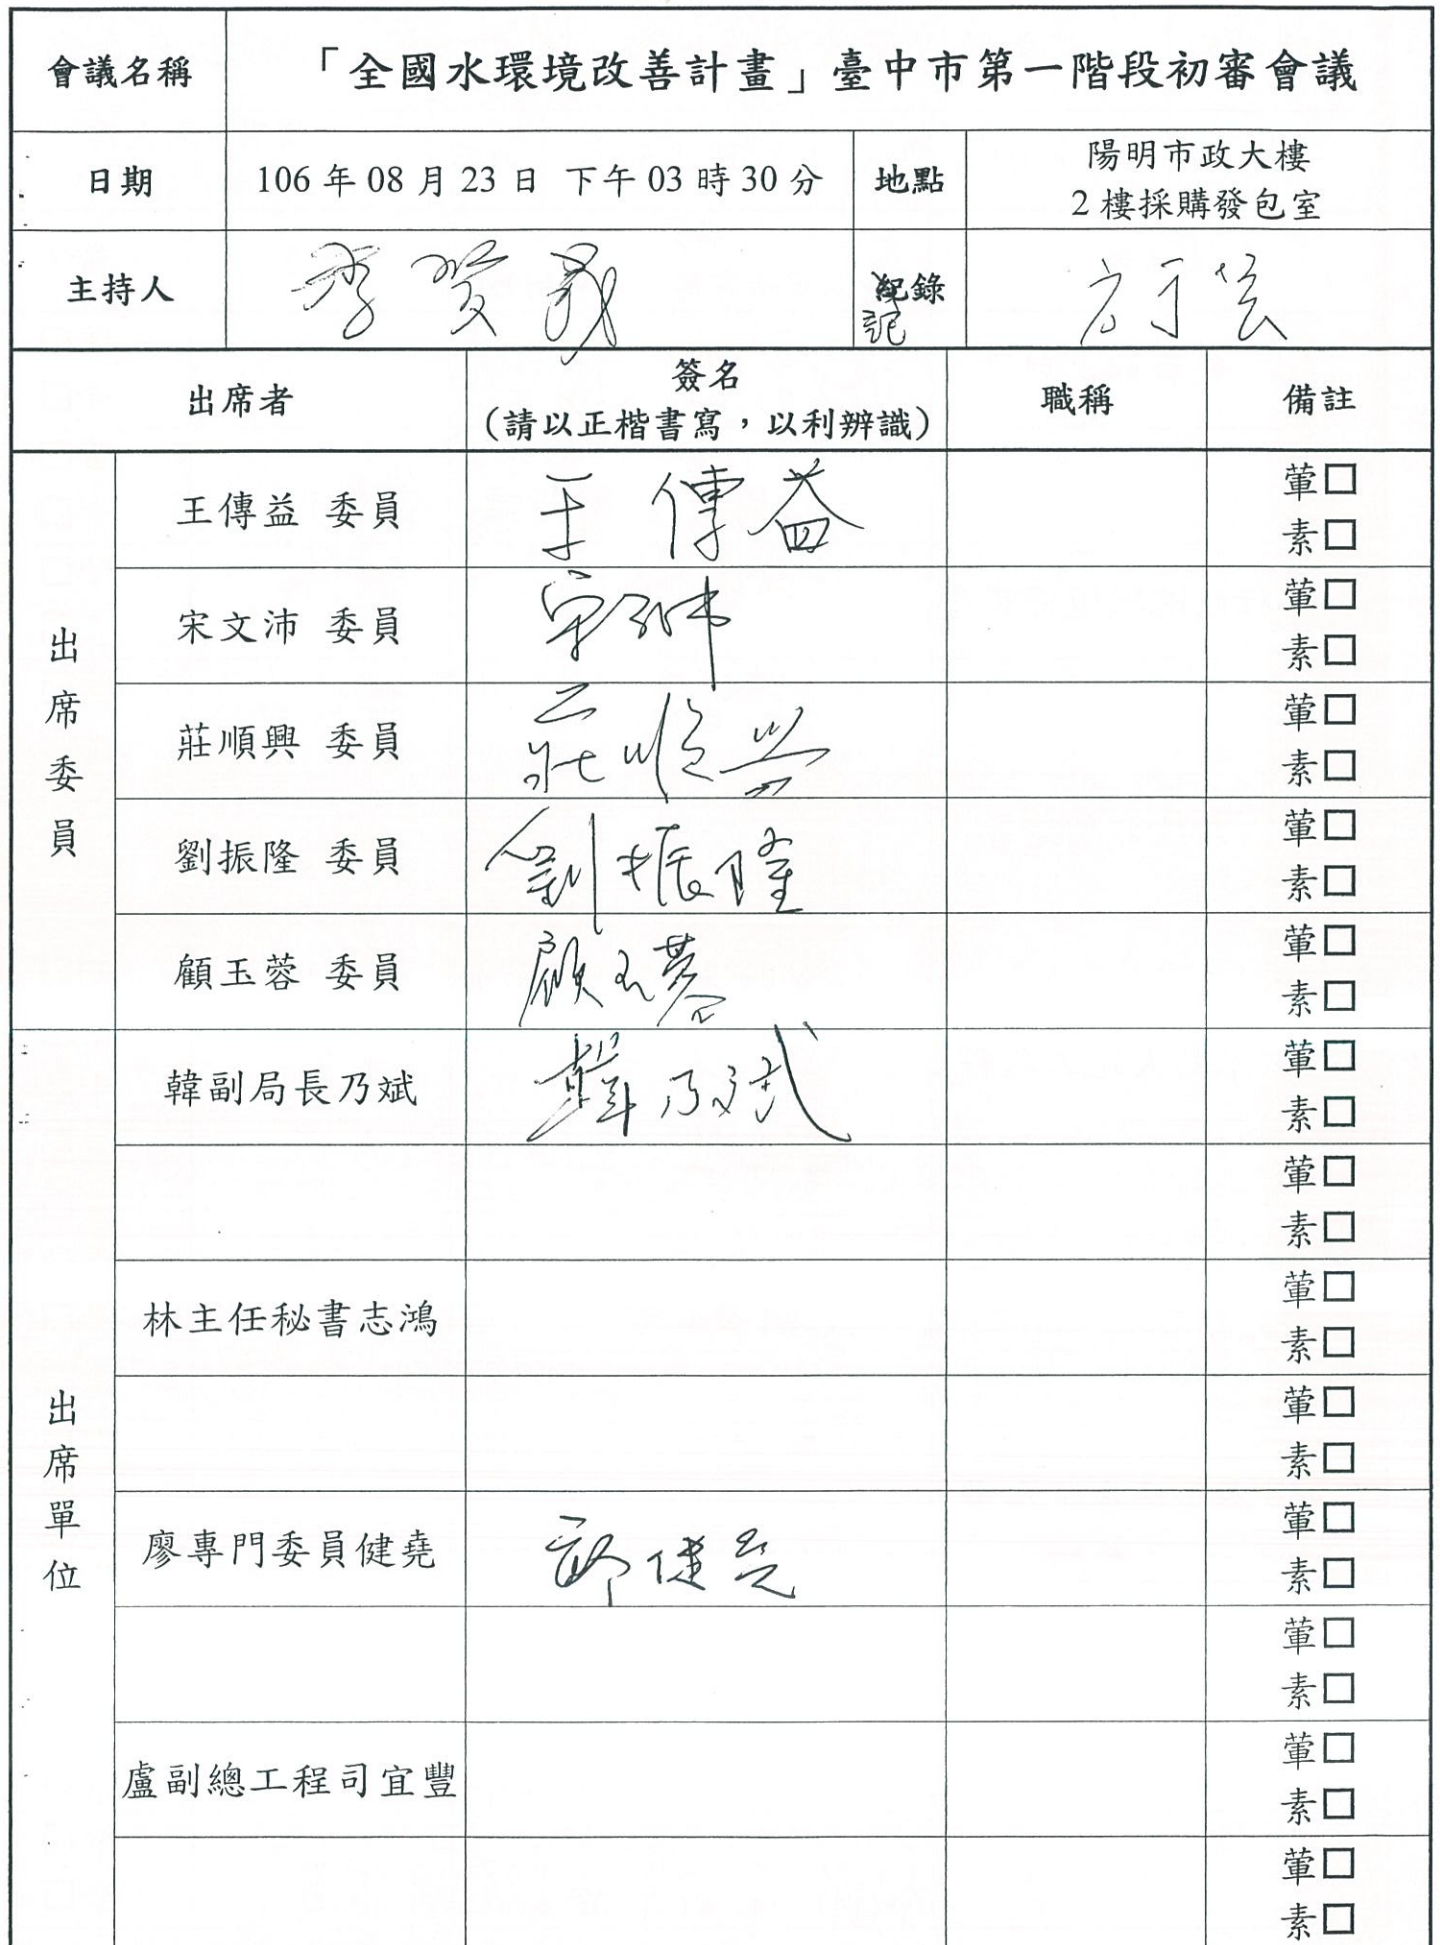 會議名稱 「全國水環境改善計畫」臺中市第一階段初審會議
日期 106 年 08 月 23 日 下午 03 時 30 分 地點 陽明市政大樓
2 樓採購發包室
主持人 紀錄
記
出席者 簽名 職稱 備註
（請以正楷書寫，以利辨識）
出席委員
王傳益 委員 王傳益 葷□
素□
宋文沛 委員 宋文沛 葷□
素□
莊順興 委員 莊順興 葷□
素□
劉振隆 委員 劉振隆 葷□
素□
顧玉蓉 委員 顧玉蓉 葷□
素□
出席單位
韓副局長乃斌 韓乃斌 葷□
素□
葷□
素□
林主任秘書志鴻 葷□
素□
葷□
素□
廖專門委員健堯 健堯 葷□
素□
葷□
素□
盧副總工程司宜豐 葷□
素□
葷□
素□